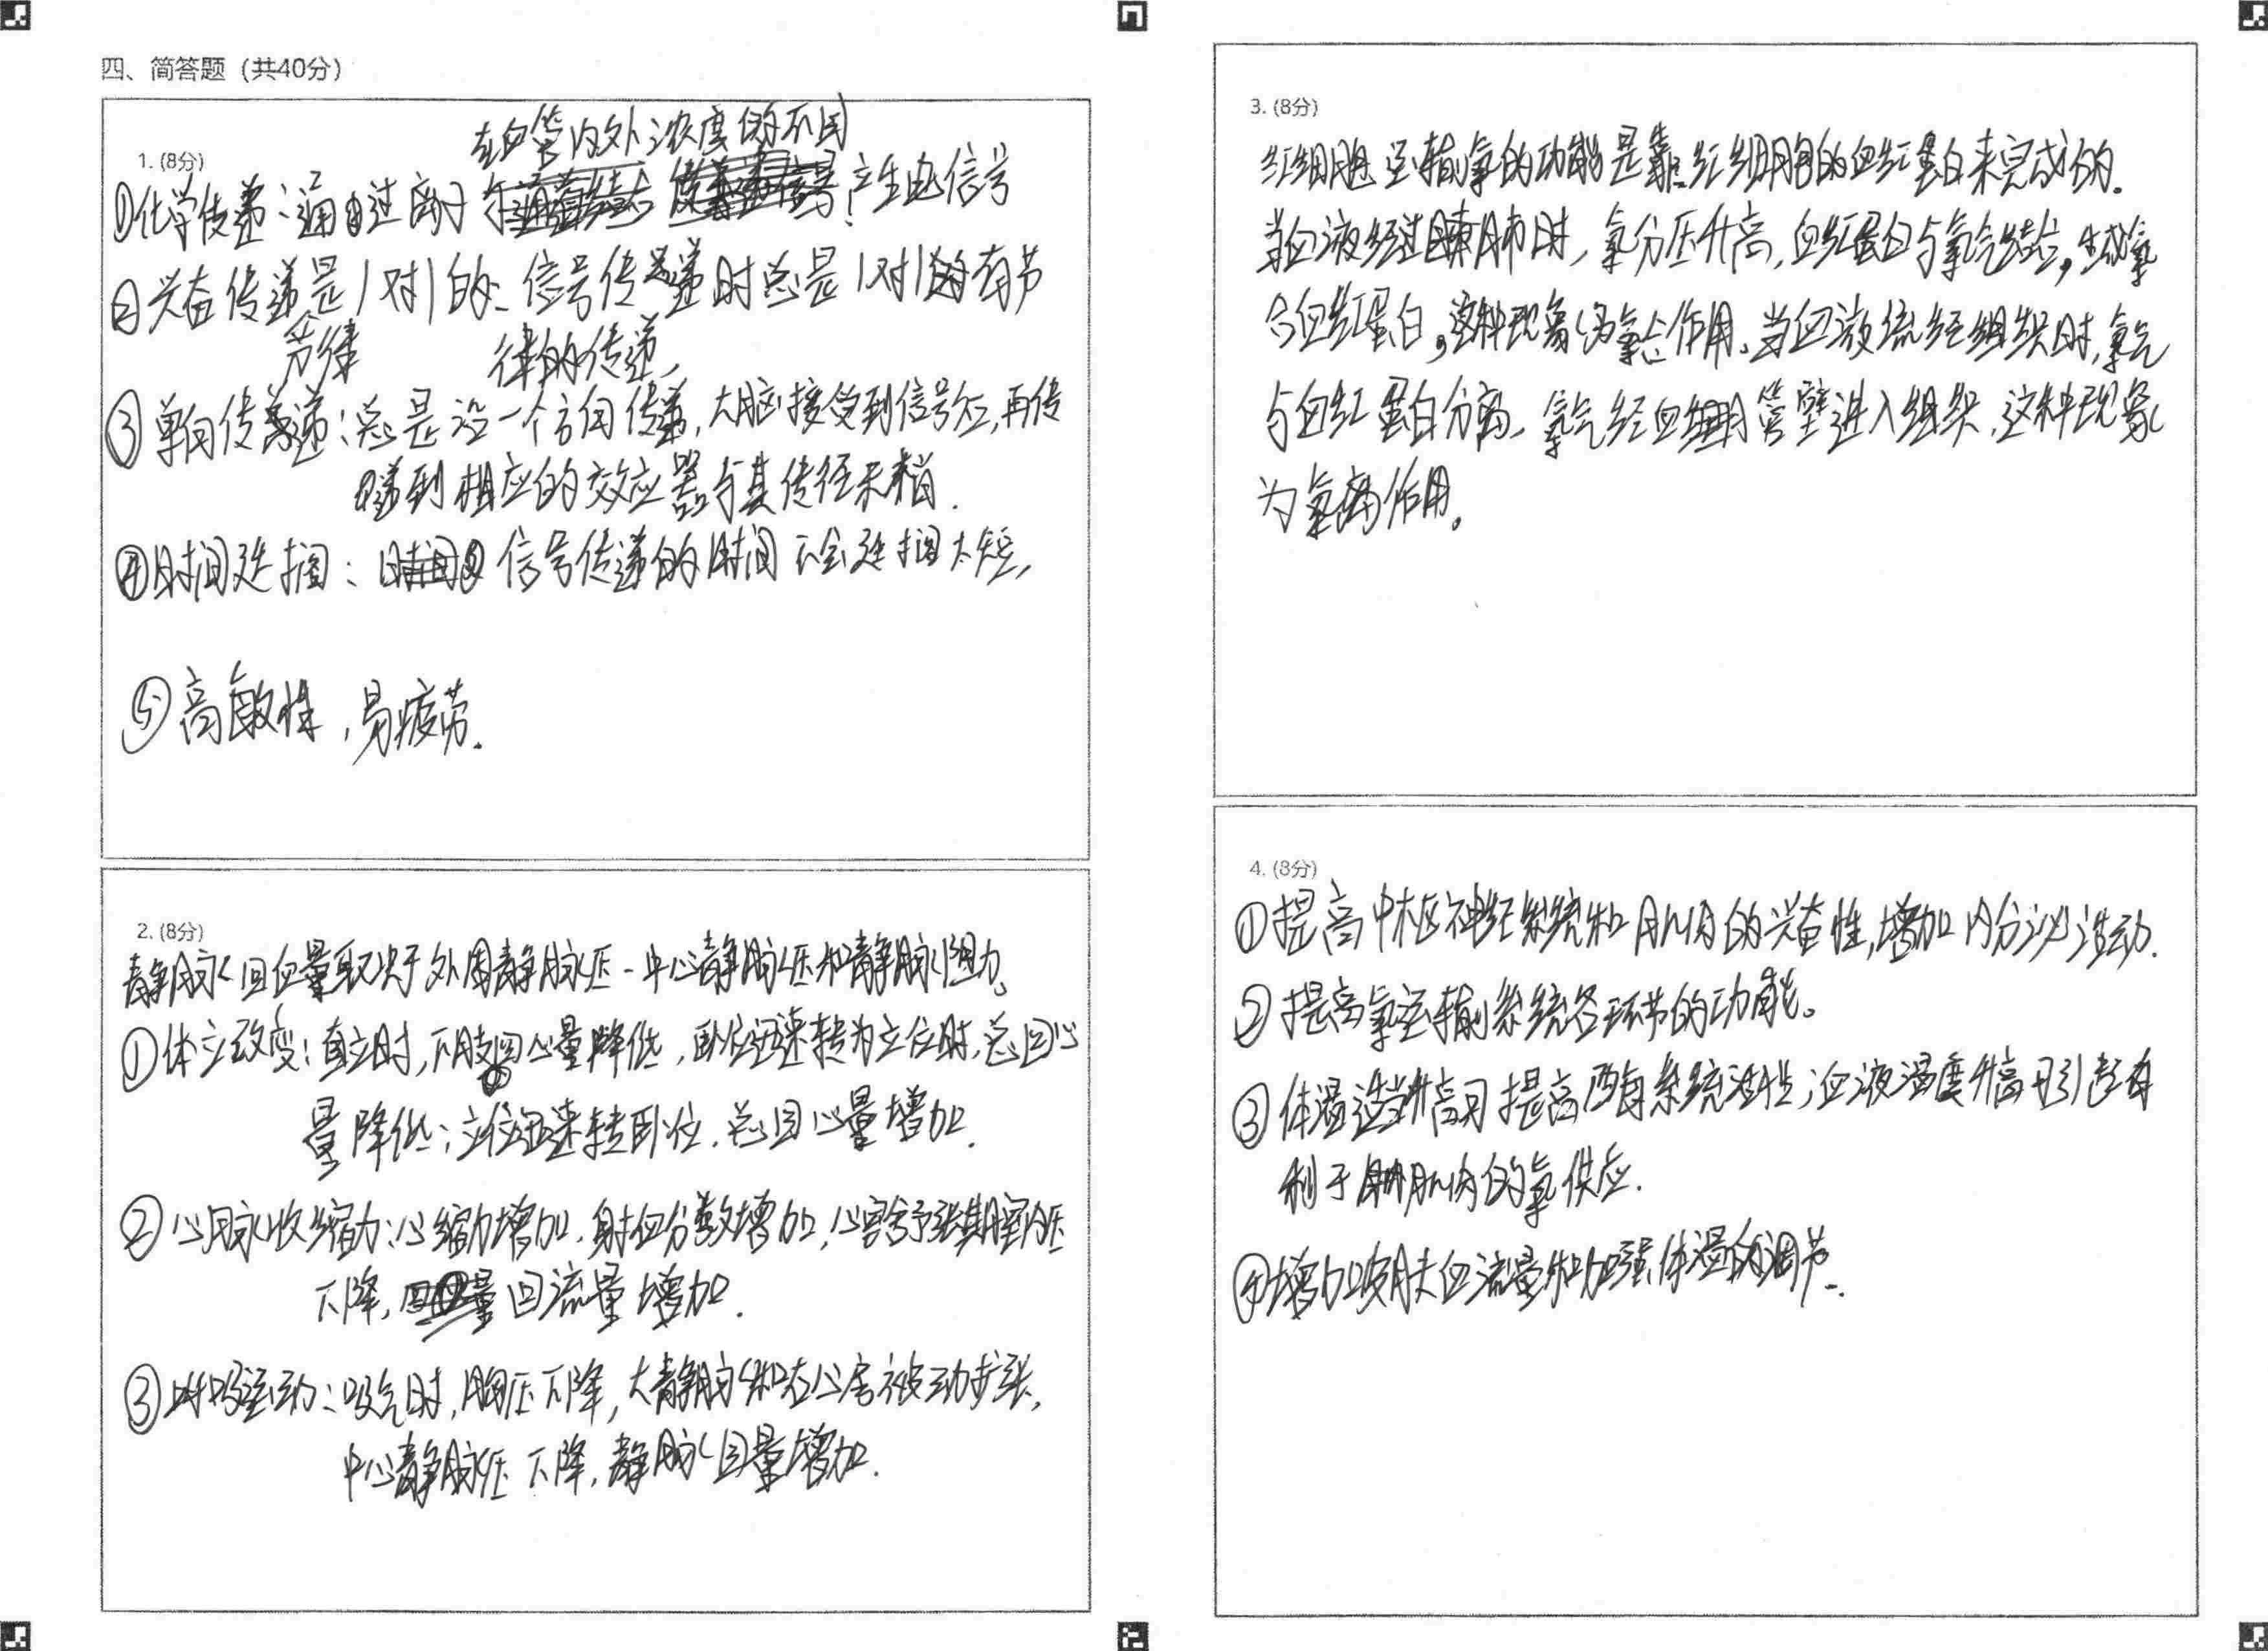 四、简答题（共40分）
1. (8分)
在血管内外浓度的不同
①化学传递：通过离子产生电信号
②兴奋传递是1对1的：信号传递时总是1对1的有节
节律
律的传递，
③单向传递：总是沿一个方向传递，大脑接受到信号后，再传
递到相应的效应器与其传径末梢.
④时间延搁：信号传递的时间不会延搁太短，
⑤高敏性，易疲劳.
2. (8分)
静脉回血量取决于外周静脉压-中心静脉压和静脉阻力。
①体立改变：直立时，下肢回心量降低，卧位迅速转为立位时，总回心
量降低；立位迅速转卧位，总回心量增加.
②心脉收缩力：心缩力增加，射血分数增加，心室舒张期室内压
下降，回流量增加.
③呼吸运动：吸气时，胸压下降，大静脉和右心房被动扩张，
中心静脉压下降，静脉回量增加.
3. (8分)
红细胞运输氧的功能是靠红细胞的血红蛋白来完成的。
当血液经过肺时，氧分压升高，血红蛋白与氧气结合，生成氧
合血红蛋白，这种现象为氧合作用。当血液流经组织时，氧气
与血红蛋白分离，氧气经血管壁进入组织，这种现象
为氧离作用。
4. (8分)
①提高中枢神经系统和肌肉的兴奋性，增加内分泌活动.
②提高氧运输系统各环节的功能。
③体温适当升高可提高酶系统活性；血液温度升高可引起有
利于肌肉的氧供应.
④增加皮肤血流量和加强体温的调节.